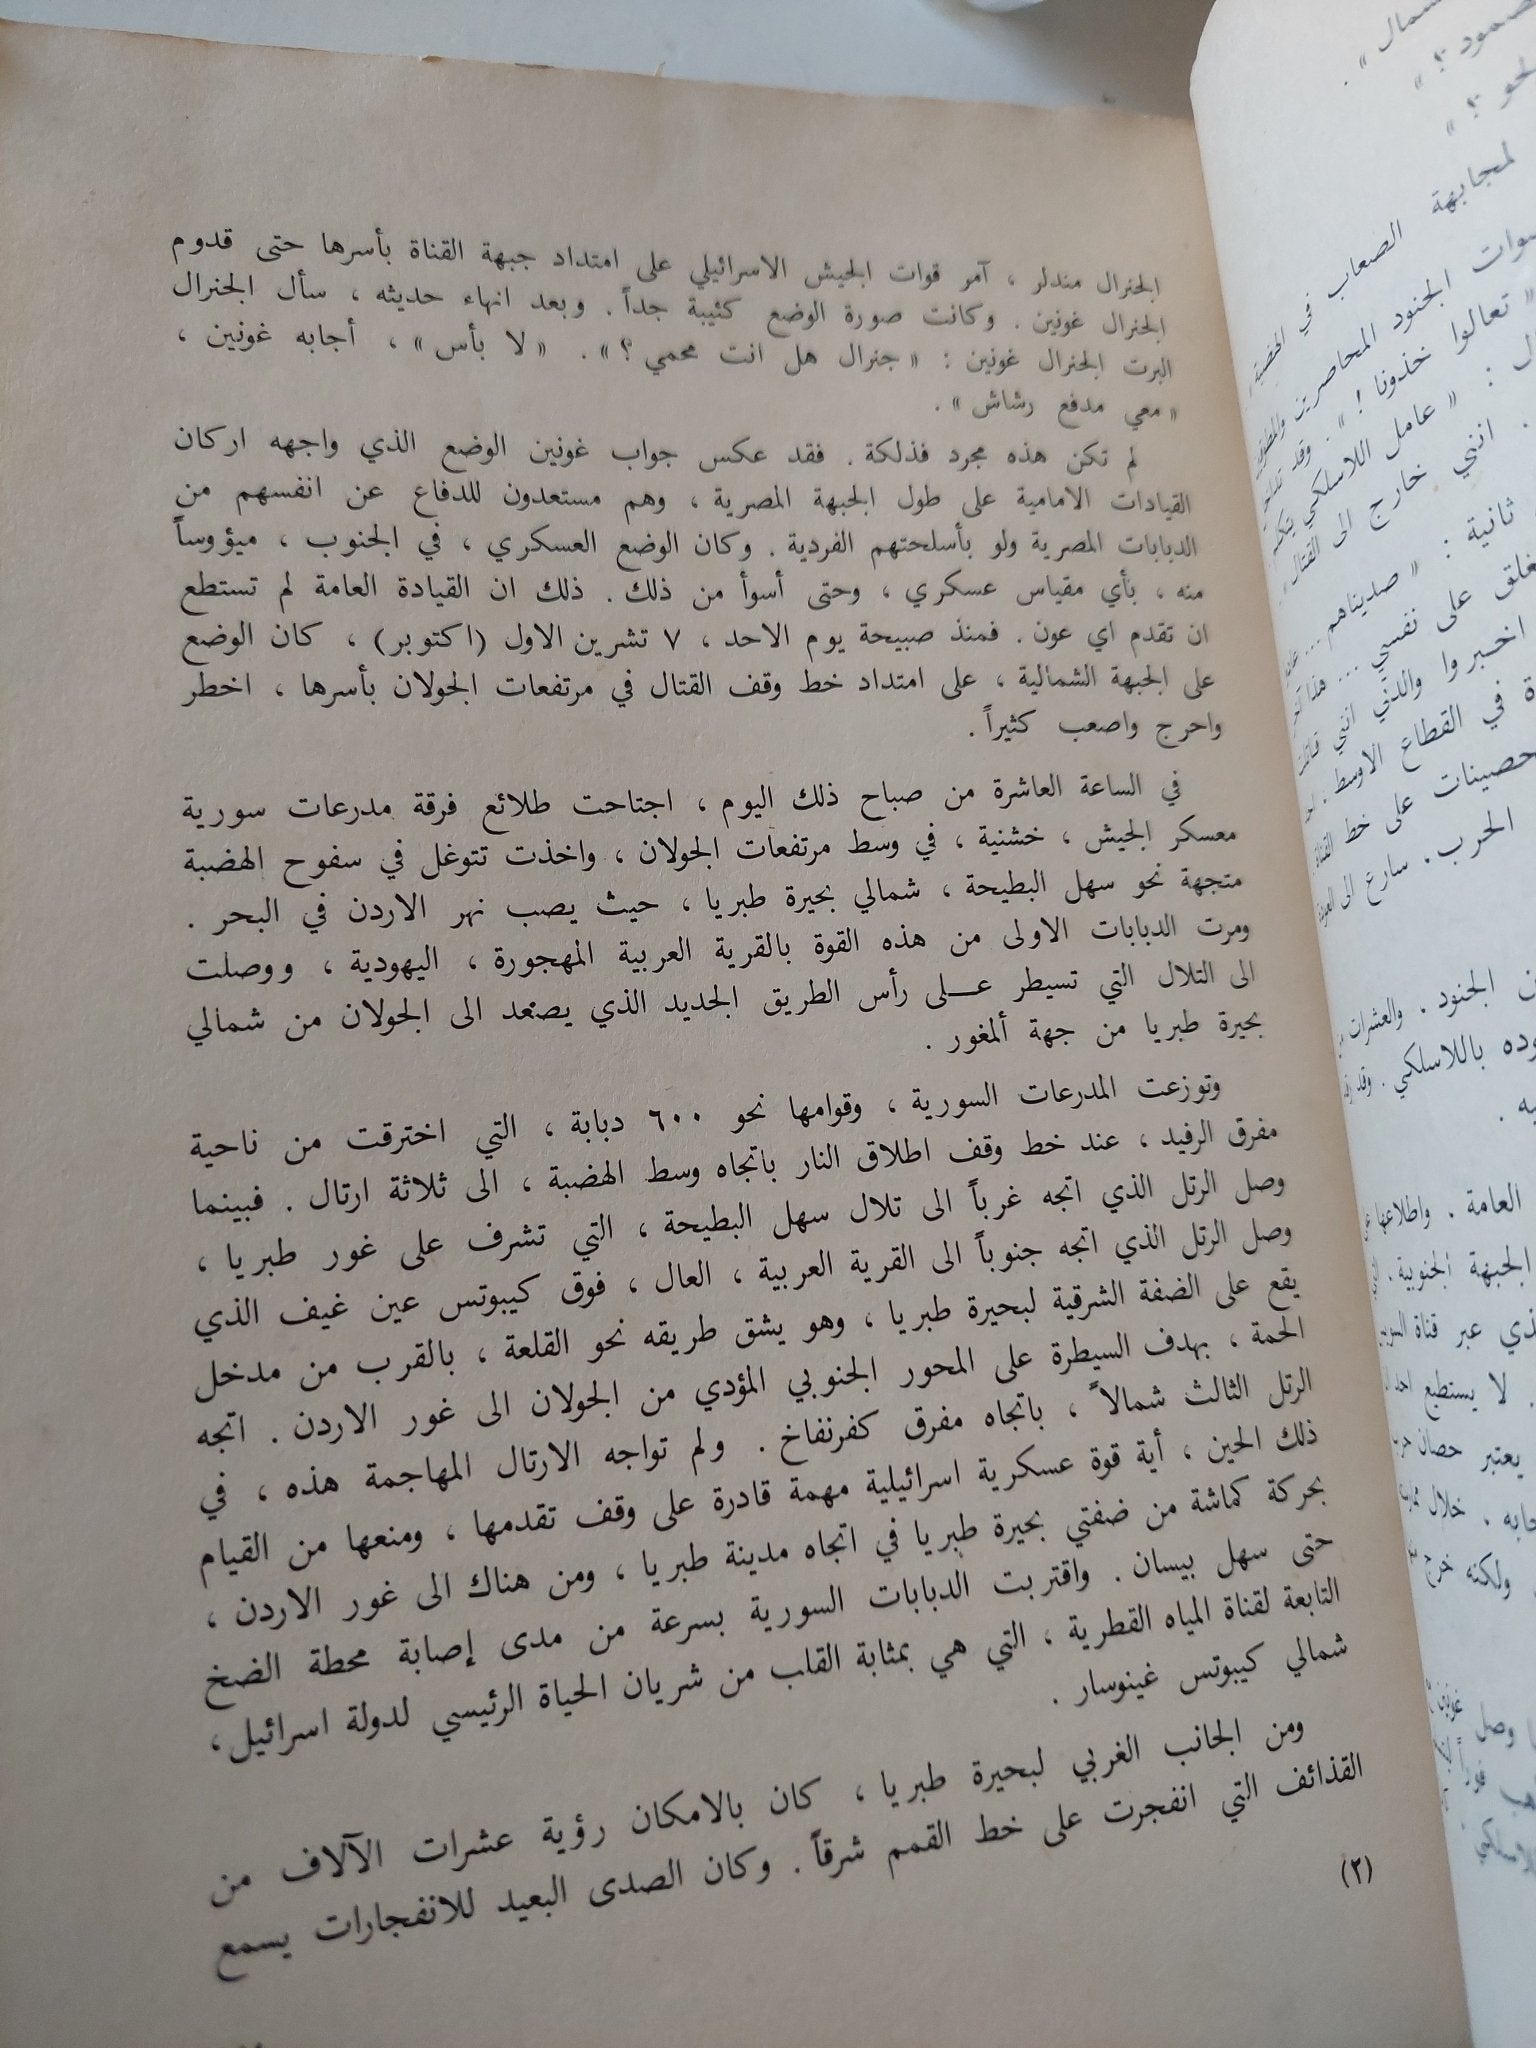 الجنرال مندلر ، آمر قوات الجيش الاسرائيلي على امتداد جبهة القناة بأسرها حتى قدوم
الجنرال غونين . وكانت صورة الوضع كئيبة جداً . وبعد انهاء حديثه ، سأل الجنرال
البرت الجنرال غونين : « جنرال هل انت محمي ؟ » . « لا بأس » ، أجابه غونين ،
« معي مدفع رشاش » .
لم تكن هذه مجرد فذلكة . فقد عكس جواب غونين الوضع الذي واجهه اركان
القيادات الامامية على طول الجبهة المصرية ، وهم مستعدون للدفاع عن انفسهم من
الدبابات المصرية ولو بأسلحتهم الفردية . وكان الوضع العسكري ، في الجنوب ، ميؤوساً
منه ، بأي مقياس عسكري ، وحتى أسوأ من ذلك . ذلك ان القيادة العامة لم تستطع
ان تقدم اي عون . فمنذ صبيحة يوم الاحد ، ٧ تشرين الاول (اكتوبر) ، كان الوضع
على الجبهة الشمالية ، على امتداد خط وقف القتال في مرتفعات الجولان بأسرها ، اخطر
واحرج واصعب كثيراً .
في الساعة العاشرة من صباح ذلك اليوم ، اجتاحت طلائع فرقة مدرعات سورية
معسكر الجيش ، خشنية ، في وسط مرتفعات الجولان ، واخذت تتوغل في سفوح الهضبة
متجهة نحو سهل البطيحة ، شمالي بحيرة طبريا ، حيث يصب نهر الاردن في البحر .
ومرت الدبابات الاولى من هذه القوة بالقرية العربية المهجورة ، اليهودية ، ووصلت
الى التلال التي تسيطر عــلى رأس الطريق الجديد الذي يصعد الى الجولان من شمالي
بحيرة طبريا من جهة ألمغور .
وتوزعت المدرعات السورية ، وقوامها نحو ٦٠٠ دبابة ، التي اخترقت من ناحية
مفرق الرفيد ، عند خط وقف اطلاق النار باتجاه وسط الهضبة ، الى ثلاثة ارتال . فبينما
وصل الرتل الذي اتجه غرباً الى تلال سهل البطيحة ، التي تشرف على غور طبريا ،
وصل الرتل الذي اتجه جنوباً الى القرية العربية ، العال ، فوق كيبوتس عين غيف الذي
يقع على الضفة الشرقية لبحيرة طبريا ، وهو يشق طريقه نحو القلعة ، بالقرب من مدخل
الحمة ، بهدف السيطرة على المحور الجنوبي المؤدي من الجولان الى غور الاردن . اتجه
الرتل الثالث شمالاً ، باتجاه مفرق كفرنفاخ . ولم تواجه الارتال المهاجمة هذه ، في
ذلك الحين ، أية قوة عسكرية اسرائيلية مهمة قادرة على وقف تقدمها ، ومنعها من القيام
بحركة كماشة من ضفتي بحيرة طبريا في اتجاه مدينة طبريا ، ومن هناك الى غور الاردن ،
حتى سهل بيسان . واقتربت الدبابات السورية بسرعة من مدى إصابة محطة الضخ
التابعة لقناة المياه القطرية ، التي هي بمثابة القلب من شريان الحياة الرئيسي لدولة اسرائيل ،
شمالي كيبوتس غينوسار .
ومن الجانب الغربي لبحيرة طبريا ، كان بالامكان رؤية عشرات الآلاف من
القذائف التي انفجرت على خط القمم شرقاً . وكان الصدى البعيد للانفجارات يسمع
(٢)
صمود ؟ »
لمجابهة الصعاب في
الجنود المحاصرين
« تعالوا خذونا ! » .
: « عامل اللاسلكي
. انني خارج الى القتال
ثانية : « صديناهم ....
على نفسي ... هذا
اخبروا والدي انني
في القطاع الاوسط .
على خط
الحرب . سارع الى
الجنود . والعشرات
باللاسلكي .
العامة . واطلاعها
الجبهة الجنوبية .
عبر قناة
. لا يستطيع احد
يعتبر حصان
، خلال
ولكنه خرج
وصل غونين